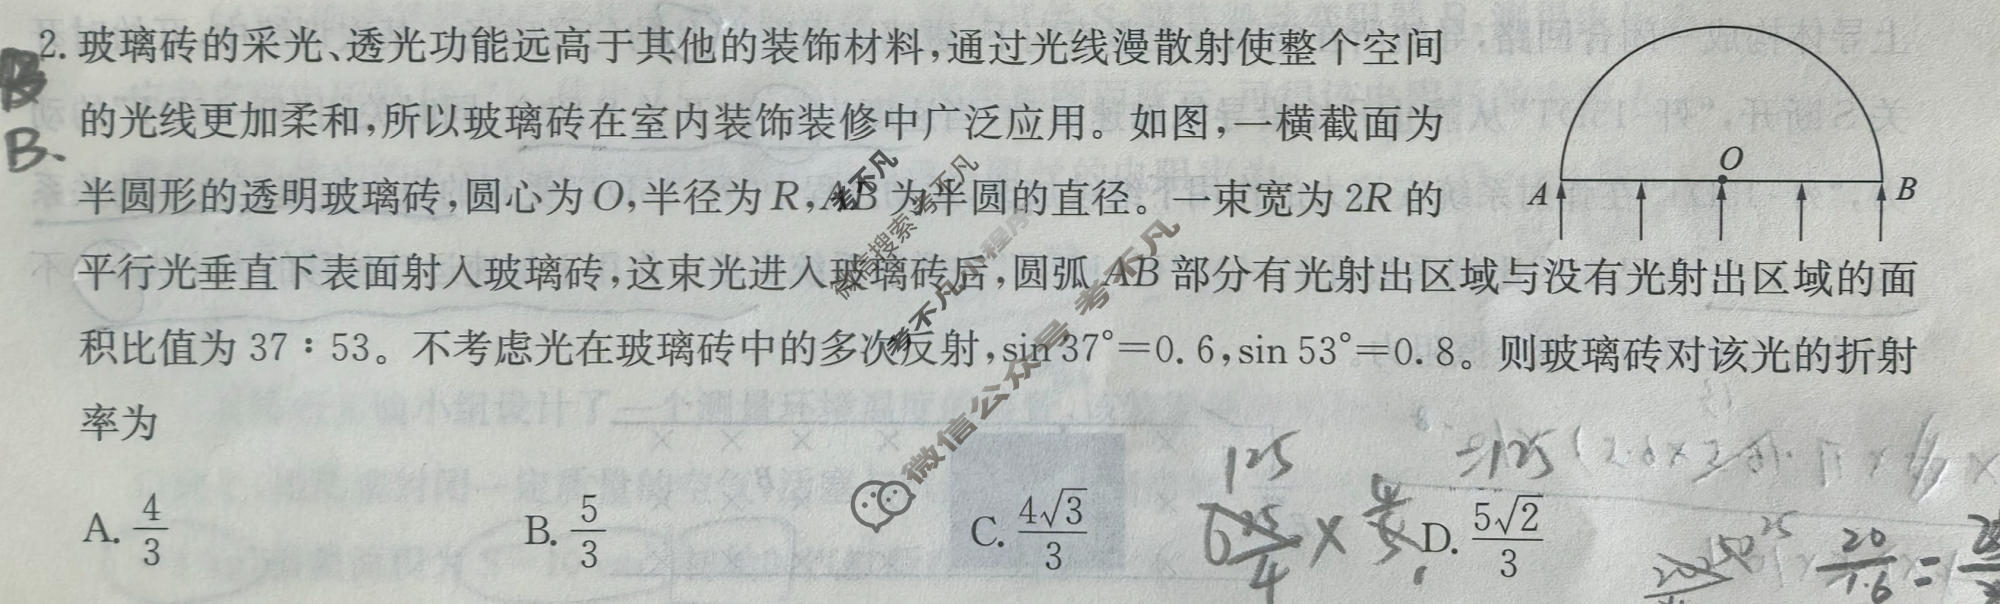 2. 玻璃砖的采光、透光功能远高于其他的装饰材料,通过光线漫散射使整个空间
B.
的光线更加柔和,所以玻璃砖在室内装饰装修中广泛应用。如图,一横截面为
半圆形的透明玻璃砖,圆心为O,半径为R,AB为半圆的直径。一束宽为2R的
平行光垂直下表面射入玻璃砖,这束光进入玻璃砖后,圆弧AB部分有光射出区域与没有光射出区域的面
积比值为37∶53。不考虑光在玻璃砖中的多次反射,sin 37°=0.6,sin 53°=0.8。则玻璃砖对该光的折射
率为
A. 4/3 B. 5/3 C. 4√3/3 D. 5√2/3
O
A B
考不凡
微信搜索考不凡
考不凡小程序
微信公众号 考不凡
125
=125
20/1.6 =